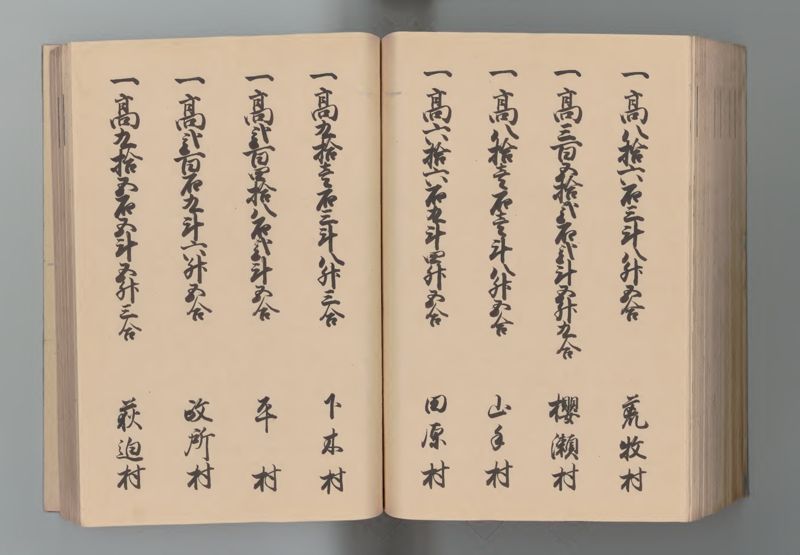 一 高八拾六石三斗八升五合 荒牧村
一 高三百五拾弐石弐斗五升九合 櫻瀬村
一 高八拾壱石壱斗八升五合 山手村
一 高六拾六石五斗四升五合 田原村
一 高九拾壱石三斗八升三合 下本村
一 高弐百四拾八石弐斗五合 平村
一 高弐百石九斗六升五合 政所村
一 高九拾五石五斗五升三合 萩迫村